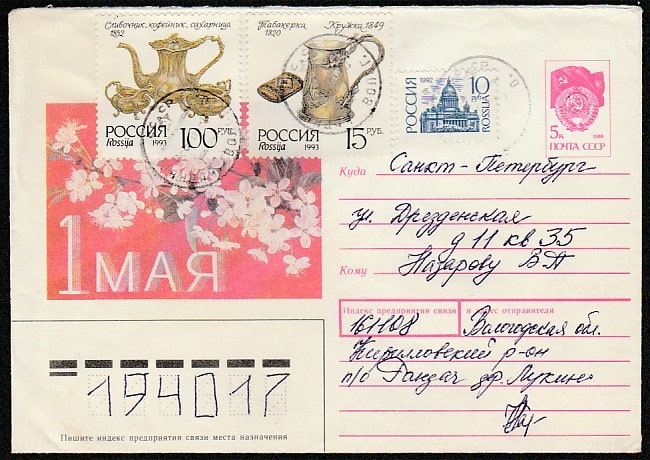 Сливочник, кофейник, сахарница
1852
РОССИЯ
Rossija
1993
100 РУБ.
Табакерка, Кружка, 1849
1820
РОССИЯ
Rossija
1993
15 РУБ.
РОССИЯ
1992
10 РУБ.
ROSSIJA
5к
1988
ПОЧТА СССР
1 МАЯ
Куда Санкт-Петербург
ул. Дрезденская
д 11 кв 35
Кому Назарову В П
Индекс предприятия связи и адрес отправителя
161108 Вологодская обл.
Кирилловский р-он
п/о
194017
Пишите индекс предприятия связи места назначения